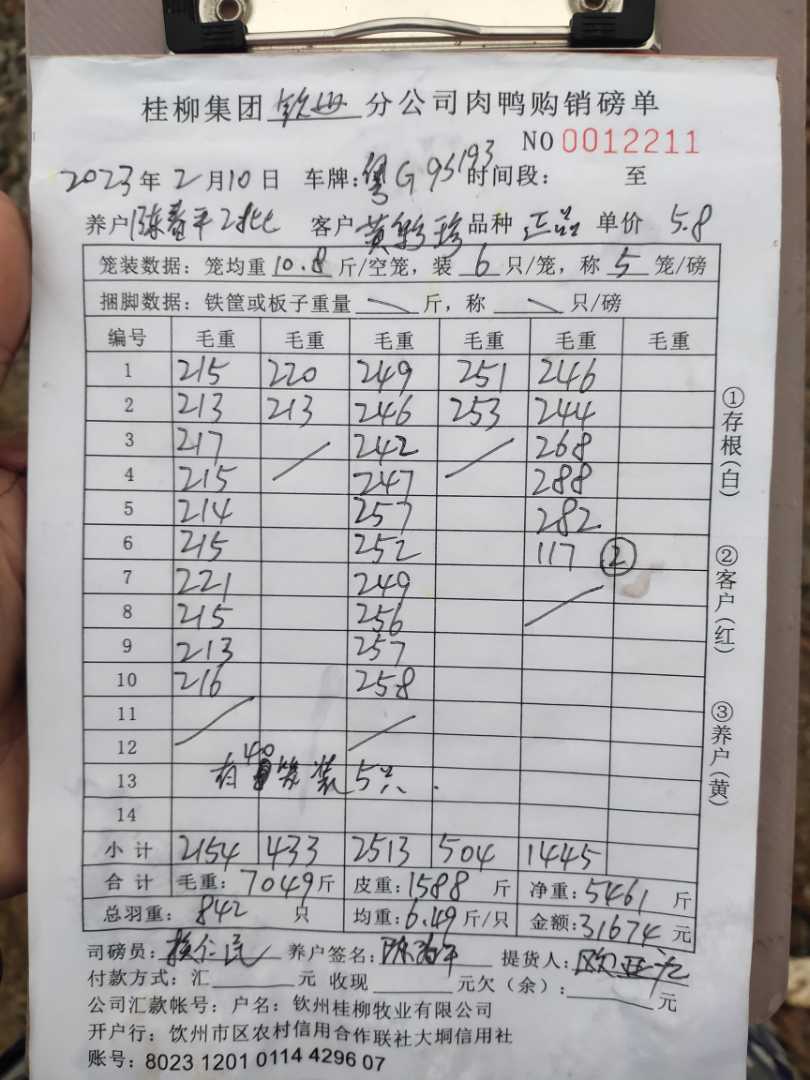 桂柳集团钦州分公司肉鸭购销磅单
NO 0012211
2023年2月10日 车牌:粤G95193 时间段: 至
养户 陈春平28北 客户 黄彩珍 品种 正品 单价 5.8
笼装数据: 笼均重10.8斤/空笼, 装6只/笼, 称5笼/磅
捆脚数据: 铁筐或板子重量 斤, 称 只/磅
编号 毛重 毛重 毛重 毛重 毛重 毛重
1 215 220 249 251 246
2 213 213 246 253 244
3 217 242 268
4 215 247 288
5 214 257 282
6 215 252 117 ②
7 221 249
8 215 256
9 213 257
10 216 258
11
12
13 有40笼装5只.
14
小计 2154 433 2513 504 1445
合计 毛重:7049斤 皮重:1588斤 净重:5461斤
总羽重: 842 只 均重:6.49斤/只 金额:31674元
司磅员: 养户签名: 提货人:
付款方式:汇 元 收现 元欠(余): 元
公司汇款帐号: 户名: 钦州桂柳牧业有限公司
开户行: 钦州市区农村信用合作联社大垌信用社
账号: 8023 1201 0114 4296 07
①存根(白)
②客户(红)
③养户(黄)